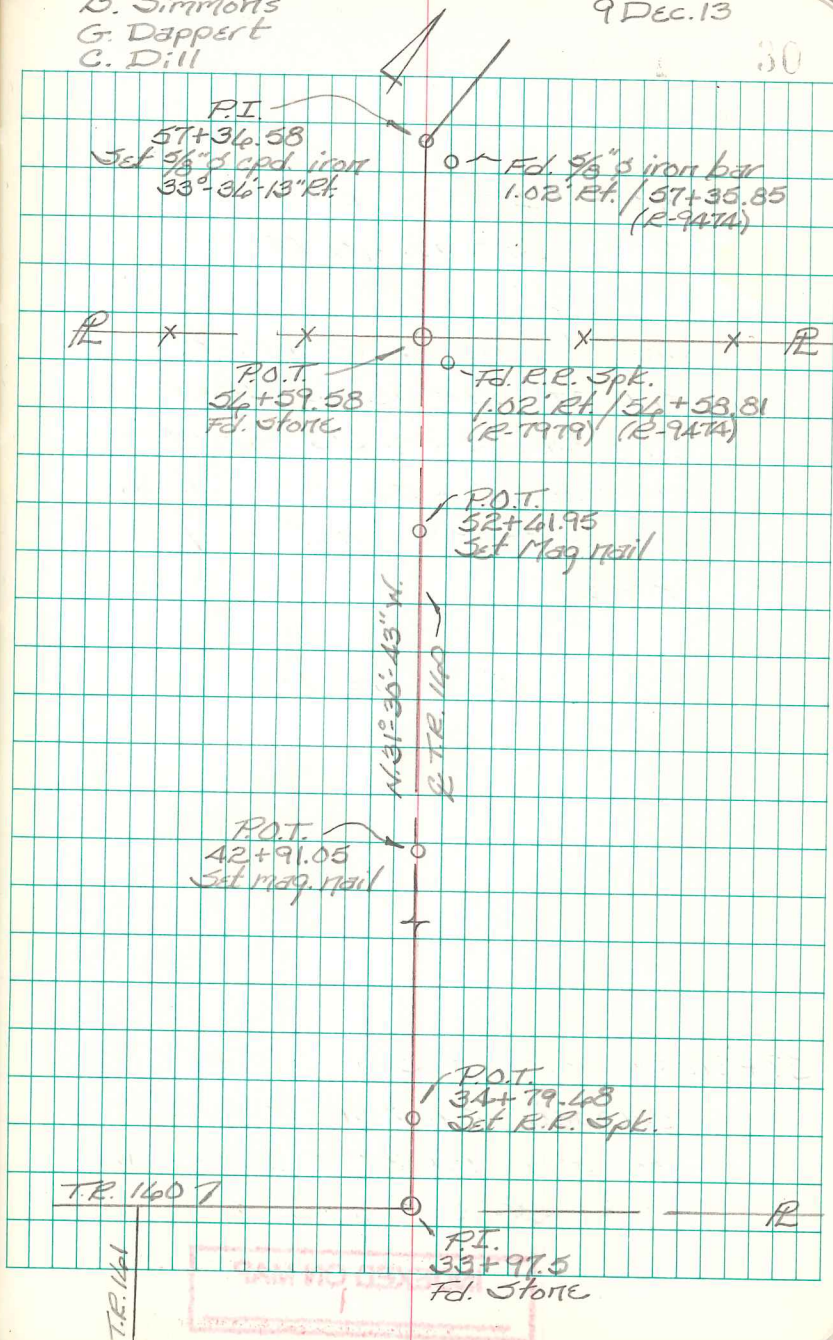 D. Simmons
G. Dappert
C. Dill
9 Dec. 13
30
P.I.
57+36.58
Set 5/8"ø cpd. iron
33°-36'-13" Rt.
Fd. 5/8"ø iron bar
1.02' Rt. / 57+35.85
(R-9474)
PL x x x x PL
P.O.T.
56+59.58
Fd. Stone
Fd. R.R. Spk.
1.02' Rt. / 56+58.81
(R-7979) (R-9474)
P.O.T.
52+61.95
Set Mag nail
N.31°-36'-43" W.
℄ T.R. 160
P.O.T.
42+91.05
Set mag. nail
P.O.T.
34+79.68
Set R.R. Spk.
T.R. 160
PL
T.R. 161
P.I.
33+97.5
Fd. Stone